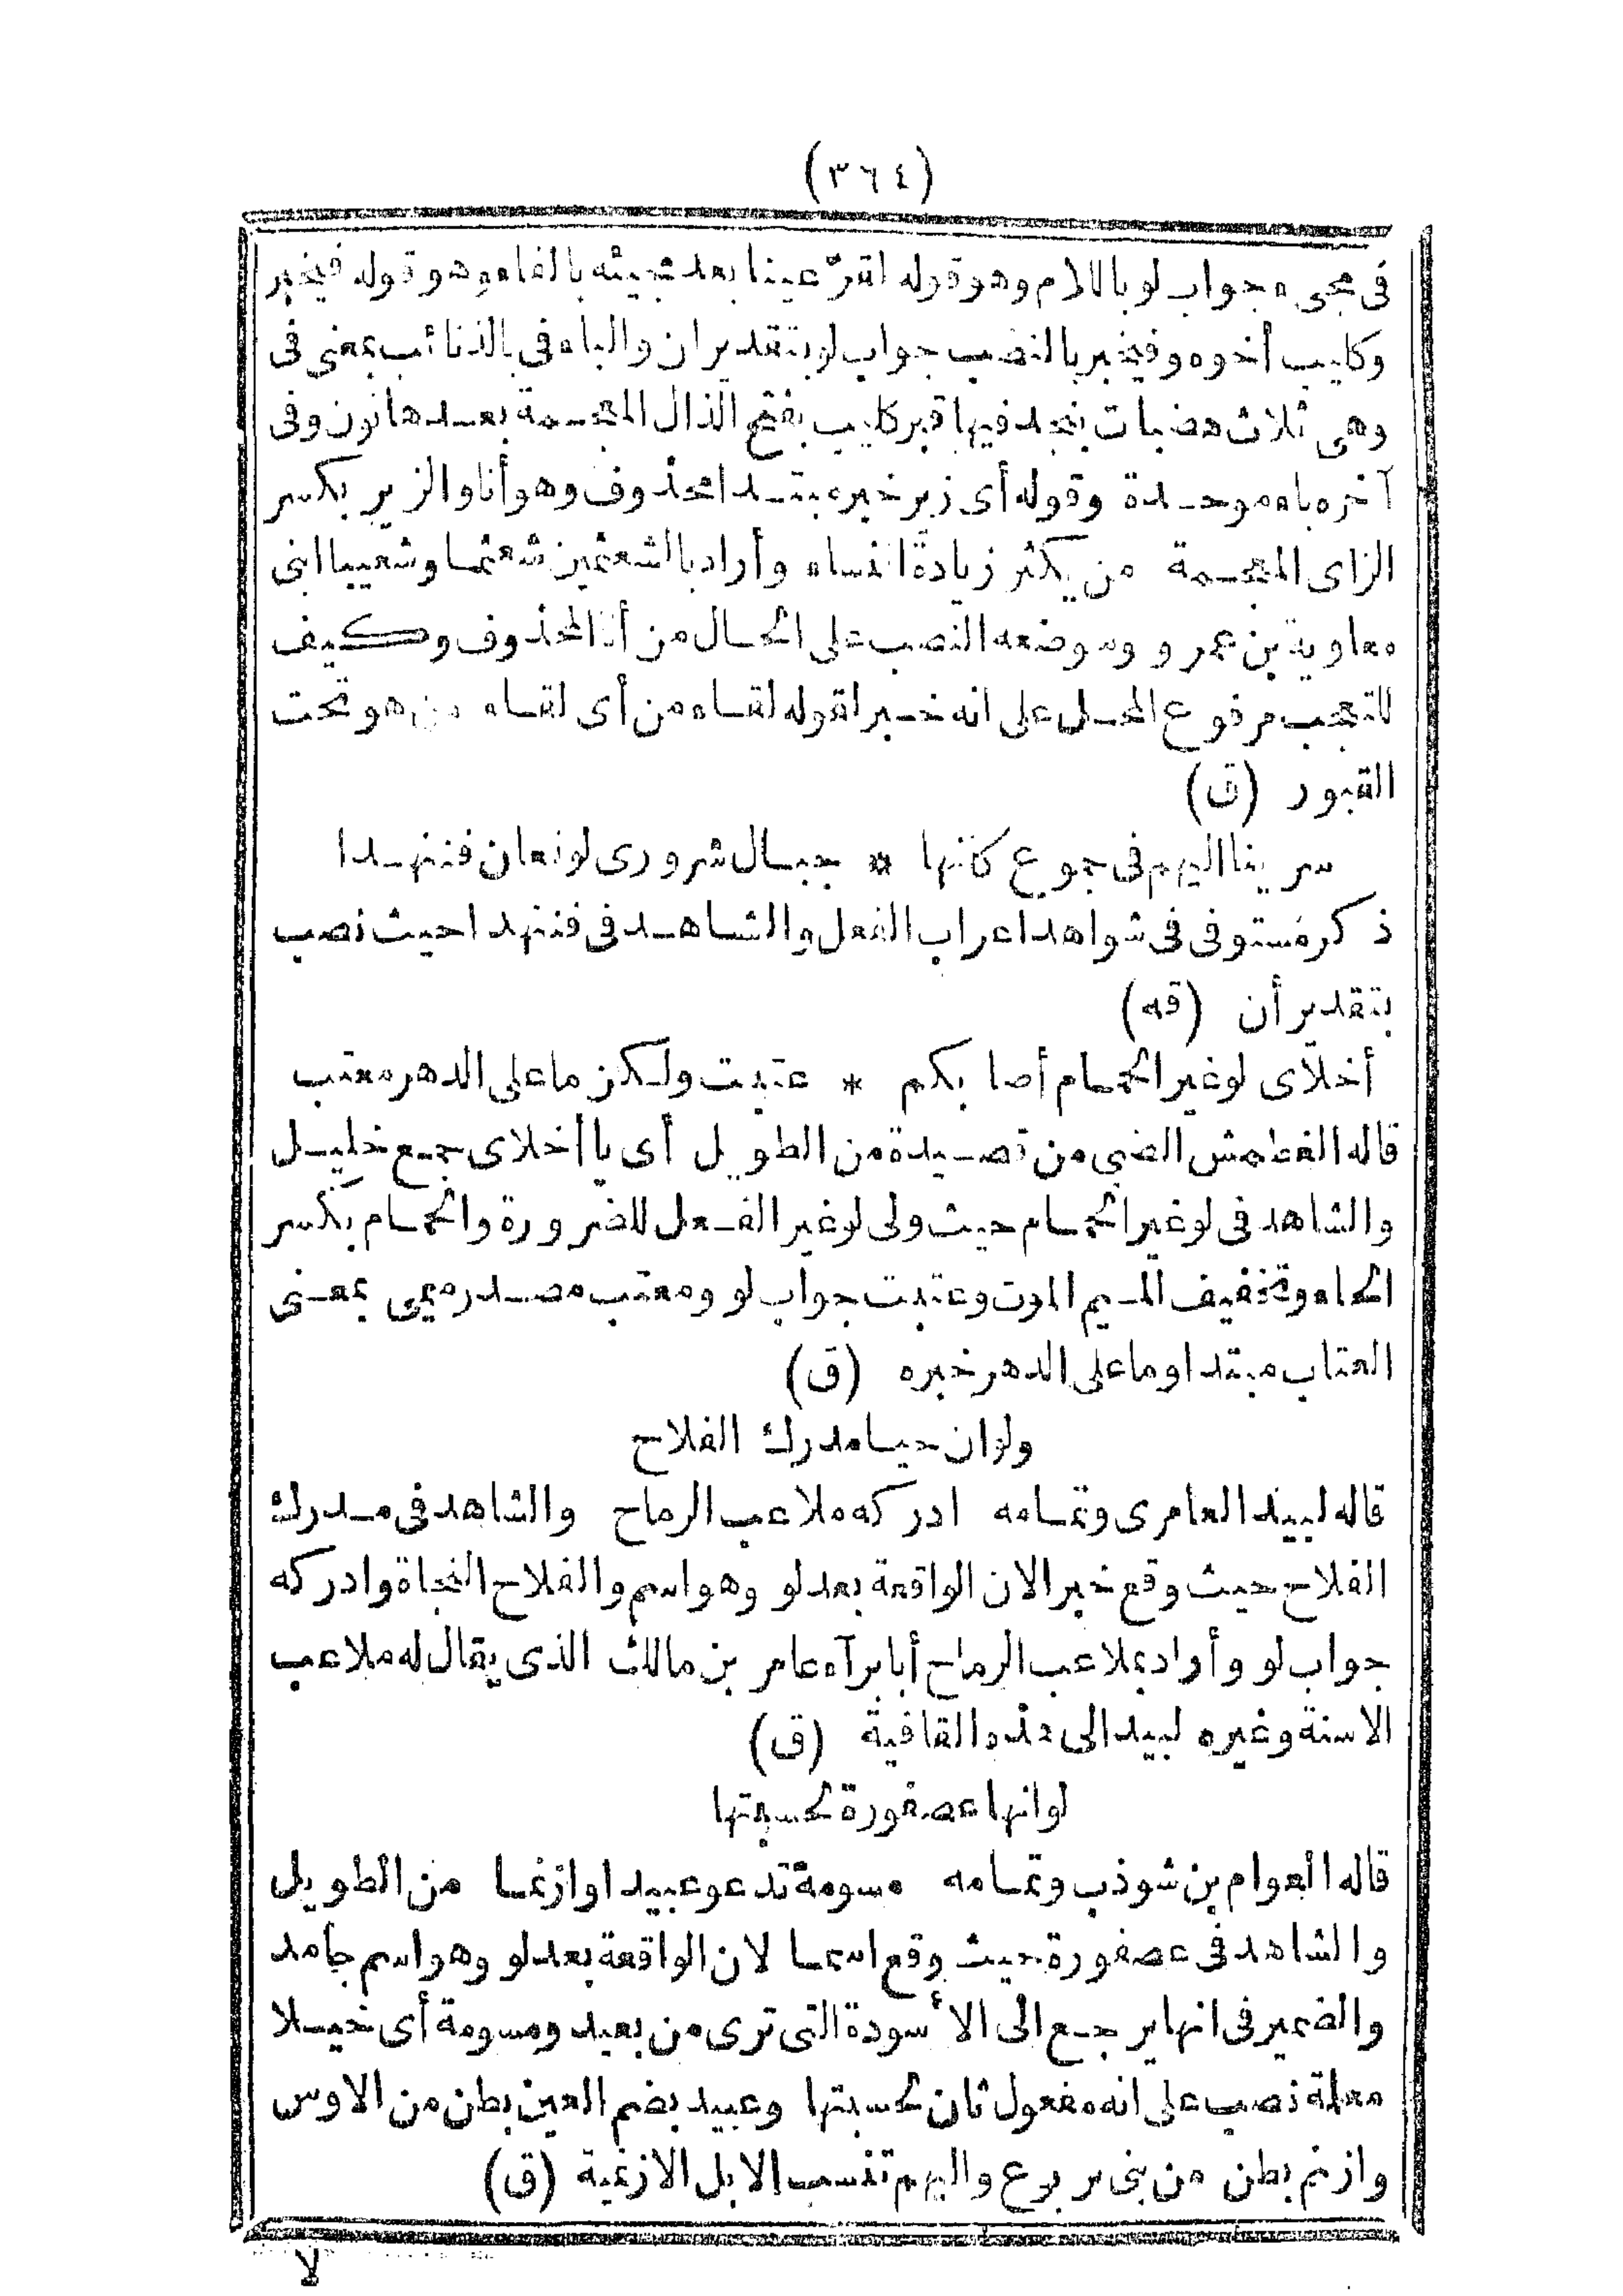 (٣٦٤)
فى مجىء جواب لو باللام وهو قوله لقرّ عينا بعد مجيئه بالفاء وهو قوله فيخبر
وكليب أخوه وفيخبر بالنصب جواب لو بتقدير ان والباء فى بالذنائب بمعنى فى
وهى ثلاث هضبات بنجد فيها قبر كليب بفتح الذال المعجمة بعدها نون وفى
آخره باء موحدة وقوله أى زير خبر مبتدا محذوف وهو أنا والزير بكسر
الزاى المعجمة من يكثر زيادة النساء وأراد بالشعثمين شعثما وشعيبا ابنى
معاوية بن عمرو وموضعه النصب على الحال من أنا المحذوف وكيف
للتعجب مرفوع المحل على انه خبر لقوله لقاء من أى لقاء من هو تحت
القبور (ق)
سرينا اليهم فى جموع كأنها * جبال شرورى لو نعان فننهدا
ذكر مستوفى فى شواهد اعراب الفعل والشاهد فى فننهدا حيث نصب
بتقدير أن (قه)
أخلاى لو غير الحمام أصابكم * عتبت ولكن ما على الدهر معتب
قاله الغطمش الضبى من قصيدة من الطويل أى يا أخلاى جمع خليل
والشاهد فى لو غير الحمام حيث ولى لو غير الفعل للضرورة والحمام بكسر
الحاء وتخفيف الميم الموت وعتبت جواب لو ومعتب مصدر ميمى بمعنى
العتاب مبتدا وما على الدهر خبره (ق)
ولو ان حيا مدرك الفلاح
قاله لبيد العامرى وتمامه ادركه ملاعب الرماح والشاهد فى مدرك
الفلاح حيث وقع خبر الان الواقعة بعد لو وهو اسم والفلاح النجاة وادركه
جواب لو وأراد بملاعب الرماح أبا برآء عامر بن مالك الذى يقال له ملاعب
الاسنة وغيره لبيد الى هذه القافية (ق)
لو انها عصفورة لحسبتها
قاله العوام بن شوذب وتمامه مسومة تدعو عبيدا وازنما من الطويل
والشاهد فى عصفورة حيث وقع اسما لان الواقعة بعد لو وهو اسم جامد
والضمير فى انها يرجع الى الأسودة التى ترى من بعيد ومسومة أى خيلا
معلمة نصب على انه مفعول ثان لحسبتها وعبيد بضم العين بطن من الاوس
وازنم بطن من بنى يربوع واليهم تنسب الابل الازنمية (ق)
لا